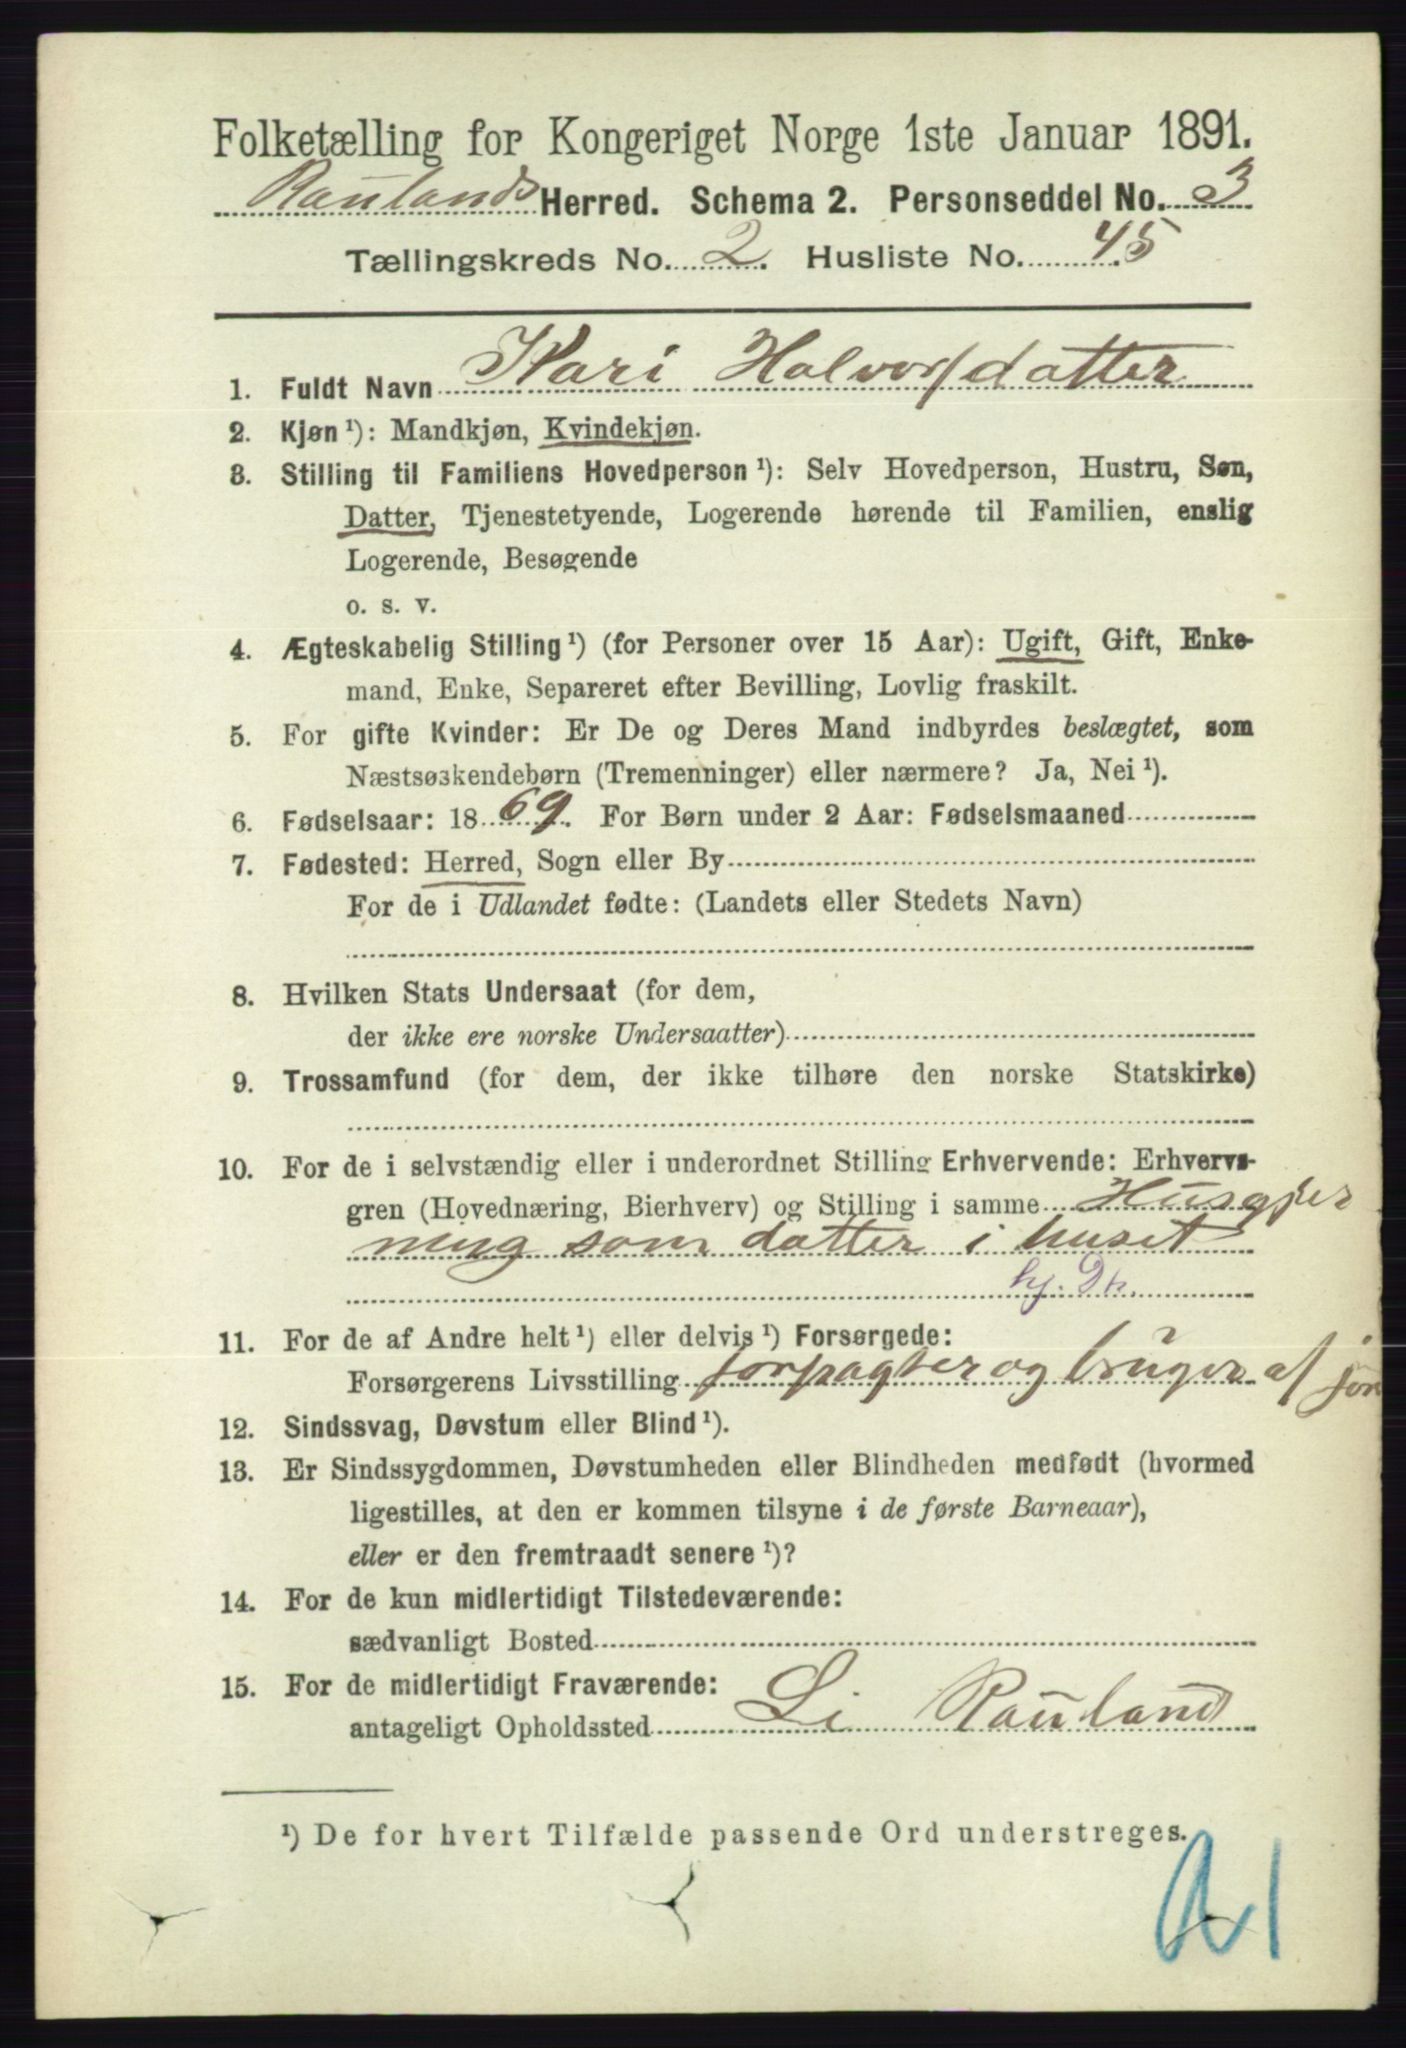 Folketælling for Kongeriget Norge 1ste Januar 1891.
Raulands Herred. Schema 2. Personseddel No. 3
Tællingskreds No. 2. Husliste No. 45
1. Fuldt Navn Kari Halvorsdatter
2. Kjøn ¹): Mandkjøn, Kvindekjøn.
3. Stilling til Familiens Hovedperson ¹): Selv Hovedperson, Hustru, Søn,
Datter, Tjenestetyende, Logerende hørende til Familien, enslig
Logerende, Besøgende
o. s. v.
4. Ægteskabelig Stilling ¹) (for Personer over 15 Aar): Ugift, Gift, Enke-
mand, Enke, Separeret efter Bevilling, Lovlig fraskilt.
5. For gifte Kvinder: Er De og Deres Mand indbyrdes beslægtet, som
Næstsøskendebørn (Tremenninger) eller nærmere? Ja, Nei ¹).
6. Fødselsaar: 1869. For Børn under 2 Aar: Fødselsmaaned
7. Fødested: Herred, Sogn eller By
For de i Udlandet fødte: (Landets eller Stedets Navn)
8. Hvilken Stats Undersaat (for dem,
der ikke ere norske Undersaatter)
9. Trossamfund (for dem, der ikke tilhøre den norske Statskirke)
10. For de i selvstændig eller i underordnet Stilling Erhvervende: Erhvervs-
gren (Hovednæring, Bierhverv) og Stilling i samme Husgjer
ning som datter i huset
hj. Dt.
11. For de af Andre helt ¹) eller delvis ¹) Forsørgede:
Forsørgerens Livsstilling forpagter og bruger af jor
12. Sindssvag, Døvstum eller Blind ¹).
13. Er Sindssygdommen, Døvstumheden eller Blindheden medfødt (hvormed
ligestilles, at den er kommen tilsyne i de første Barneaar),
eller er den fremtraadt senere ¹)?
14. For de kun midlertidigt Tilstedeværende:
sædvanligt Bosted
15. For de midlertidigt Fraværende:
antageligt Opholdssted Li Rauland
¹) De for hvert Tilfælde passende Ord understreges.